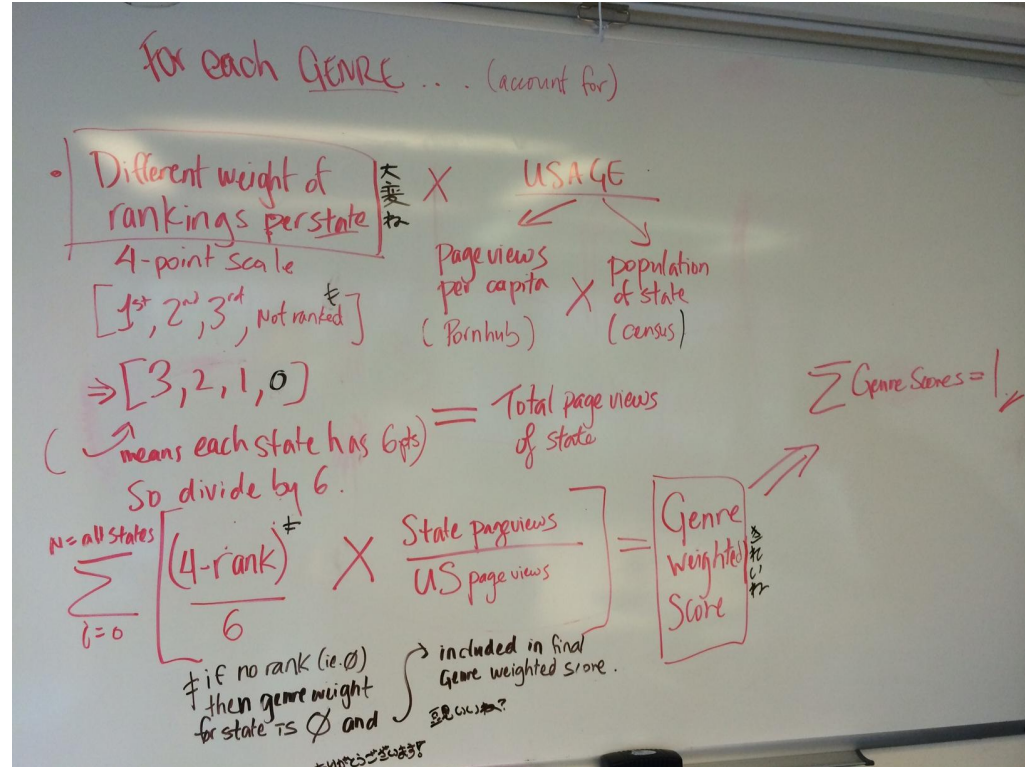 For each GENRE ... (account for)
• Different weight of
rankings per state
大変ね
X
USAGE
4-point scale
[1st, 2nd, 3rd, Not ranked‡]
⇒ [3, 2, 1, 0]
(means each state has 6pts)
So divide by 6.
Pageviews
per capita
(Pornhub)
X
population
of state
(census)
= Total page views
of state
N = all states
∑
i=0
[(4-rank)‡
6
X
State pageviews
US pageviews
]
=
Genre
Weighted
Score
きれいね
∑ Genre Scores = 1
‡ if no rank (ie. Ø)
then genre weight
for state is Ø and
included in final
Genre weighted score.
ありがとうございます!